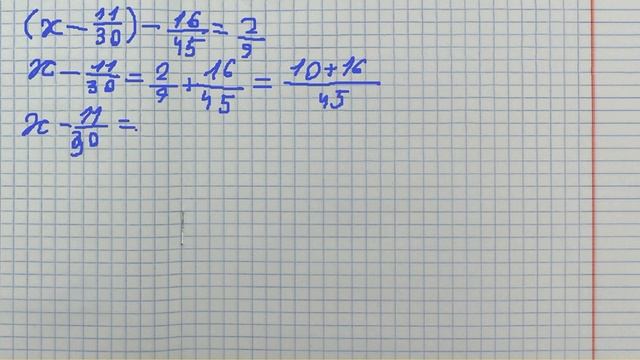 (x - 11/30) - 16/45 = 2/9
x - 11/30 = 2/9 + 16/45 = (10+16)/45
x - 11/30 =